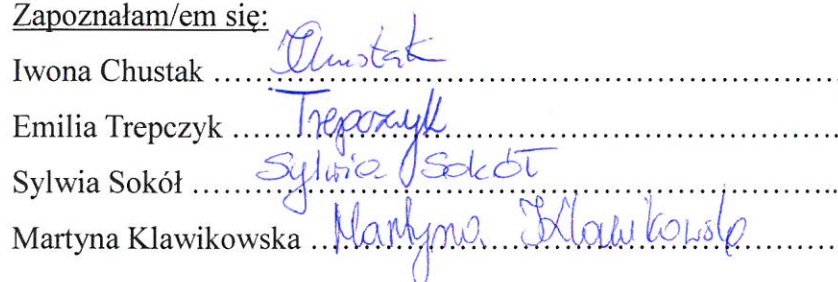 Zapoznałam/em się:
Iwona Chustak ........ Chustak ........
Emilia Trepczyk ........ Trepczyk ........
Sylwia Sokół ........ Sylwia Sokół ........
Martyna Klawikowska ........ Martyna Klawikowska ........